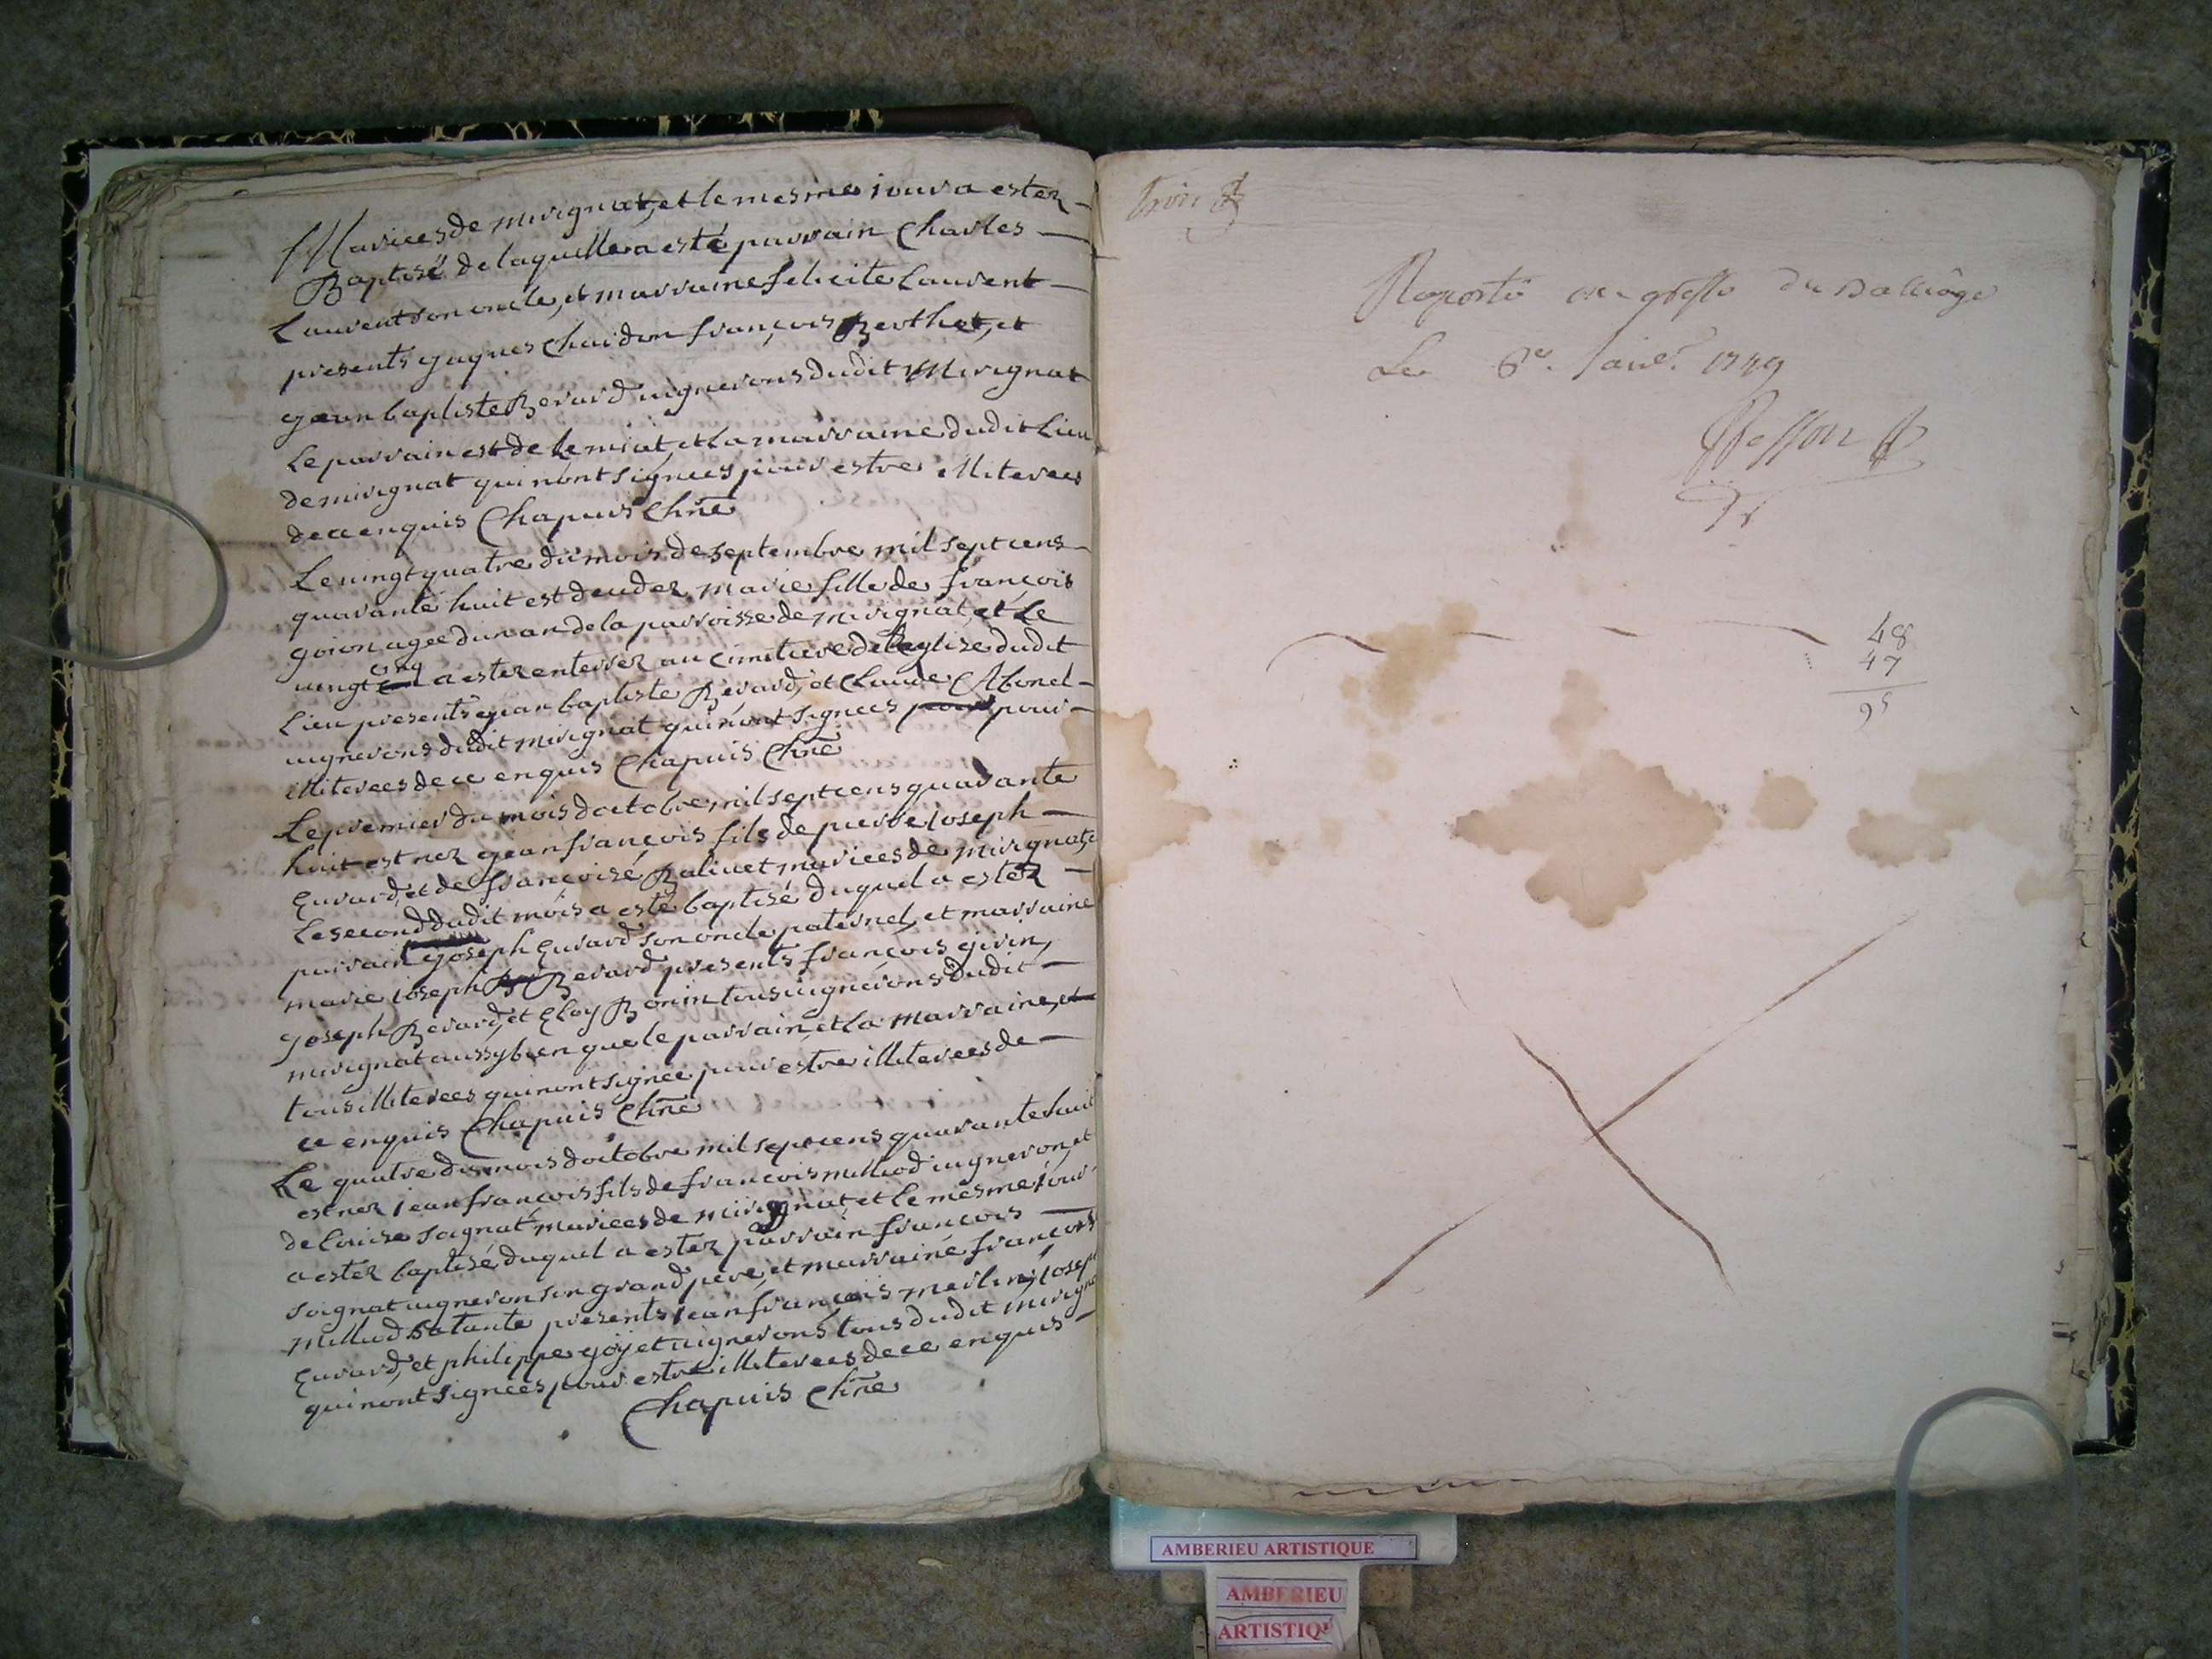 Mariees de mirignat, et le mesme iour a ester
Baptisé de laquelle a esté parrain Charles
Laurent son oncle, et marraine felicite Laurent
presents jaques Chaidon françois Berthet, et
jean baptiste Berard uignerons dudit Mirignat
Le parrain est de Lemiat, et La marraine dudit Lieu
de mirignat qui nont signees pour estre illiterees
de ce enquis Chapuis Chñe
Le uingt quatre du mois de septembre mil sept cens
quarante huit est decedez marie fille de françois
goion agee dun an de la parroisse de mirignat, et Le
uingt cinq a ester enterrez au cimitiere de Leglize dudit
Lieu presents jean baptiste Berard, et Claude Abonel
uignerons dudit mirignat qui nont signees pour
illiterees de ce enquis Chapuis Chñe
Le premier du mois doctobre mil sept cens quarante
huit est nez jean françois fils de pierre ioseph
Euvard, et de françoise Balivet mariees de mirignat, et
Le second dudit mois a esté baptisé duquel a ester
parrain joseph Euvard son oncle paternel, et marraine
marie ioseph Berard presents françois givin,
joseph Berard, et Eloy Bonin tous uignerons dudit
mirignat aussy bien que le parrain, et La marraine, et
tous illiterees qui nont signee pour estre illiterees de
ce enquis Chapuis Chñe
Le quatre du mois doctobre mil sept cens quarante huit
est nez iean françois fils de françois milliod uigneron, et
de Louize soignat mariees de mirignat, et le mesme iour
a ester baptisé duquel a ester parrain françois
soignat uigneron son grand pere, et marraine françoise
milliod sa tante presents iean françois merlin, ioseph
Euvard, et philippe gojet uignerons tous dudit mirignat
qui nont signees pour estre illiterees de ce enquis
Chapuis Chñe
Raporté au greffe du Balliage
Le 6e. janv. 1749
48
47
95
AMBERIEU ARTISTIQUE
AMBERIEU
ARTISTIQU